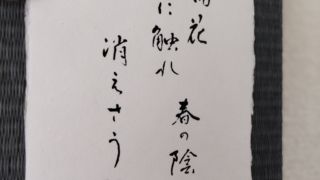 花
に触れ 春の陰
消えさう